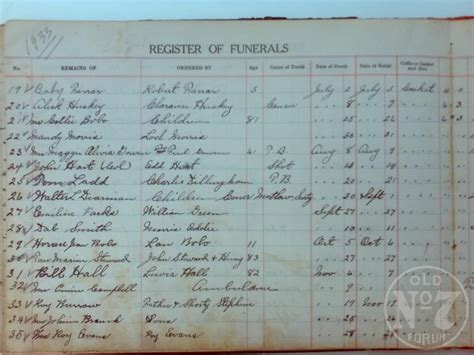 1933
REGISTER OF FUNERALS
No. REMAINS OF ORDERED BY Age Cause of Death Date of Death Date of Burial Coffin or Casket and Size
19 Baby Farrar Robert Farrar 5 July 2 July 3 Casket 4 0
20 Alick Huskey Clarence Huskey Cancer 8 9 6 3
21 Mrs Callie Bobo Children 81
22 Mandy Morris Lod Morris
23 Mrs Maggie Alivia Green Paul Green 61 T.B. Aug 8 Aug 9
24 John Hart Odd Hart Shot 14
25 Tom Ladd Charlie Dillingham P.B 24
26 Walter Dearman Children 30 Sept 1
27 Emiline Parks William Green Sept 27
28 Dab Smith Addie
29 Horace Jean Bobo Lan Bobo 11 Oct 5 Oct 6
30 Steward John Steward 82
31 Bill Hall Lewis Hall 82 Nov 6
32 Mrs Campbell Ambulance
33 Roy Burrow & Shorty Stephens 19 Nov
34 Mrs Johnie Branch Sons
35 Mrs Roy Evans Roy Evans
OLD
No. 7
FORUM